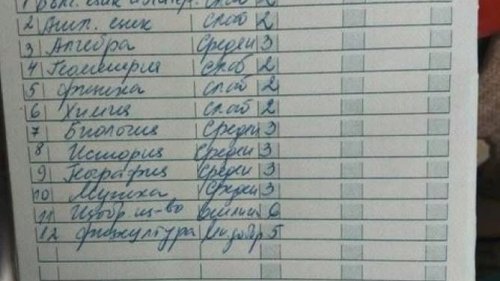 1 Бълг. език и литер. слаб 2
2 Англ. език слаб 2
3 Алгебра Среден 3
4 Геометрия слаб 2
5 Физика слаб 2
6 Химия слаб 2
7 Биология Среден 3
8 История Среден 3
9 География Среден 3
10 Музика Среден 3
11 Изобр. из-во 6
12 Физкултура 5